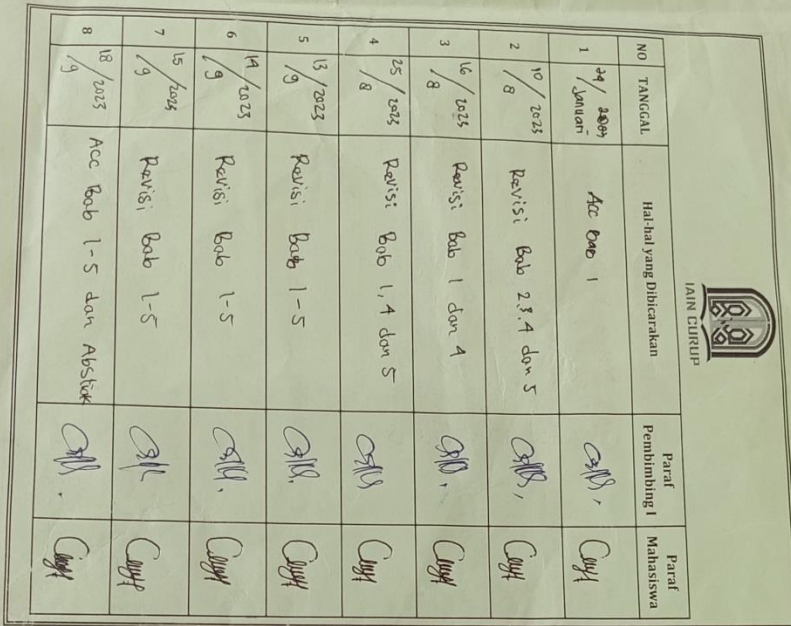 IAIN CURUP
NO TANGGAL Hal-hal yang Dibicarakan Paraf Pembimbing I Paraf Mahasiswa
1 Januari Acc Bab 1
2 10/2023 8 Revisi Bab 2.3.4 dan 5
3 16/2023 8 Revisi Bab 1 dan 4
4 25/2023 8 Revisi Bab 1, 4 dan 5
5 13/2023 9 Revisi Bab 1-5
6 14/2023 9 Revisi Bab 1-5
7 15/2023 9 Revisi Bab 1-5
8 18/2023 9 Acc Bab 1-5 dan Abstrak